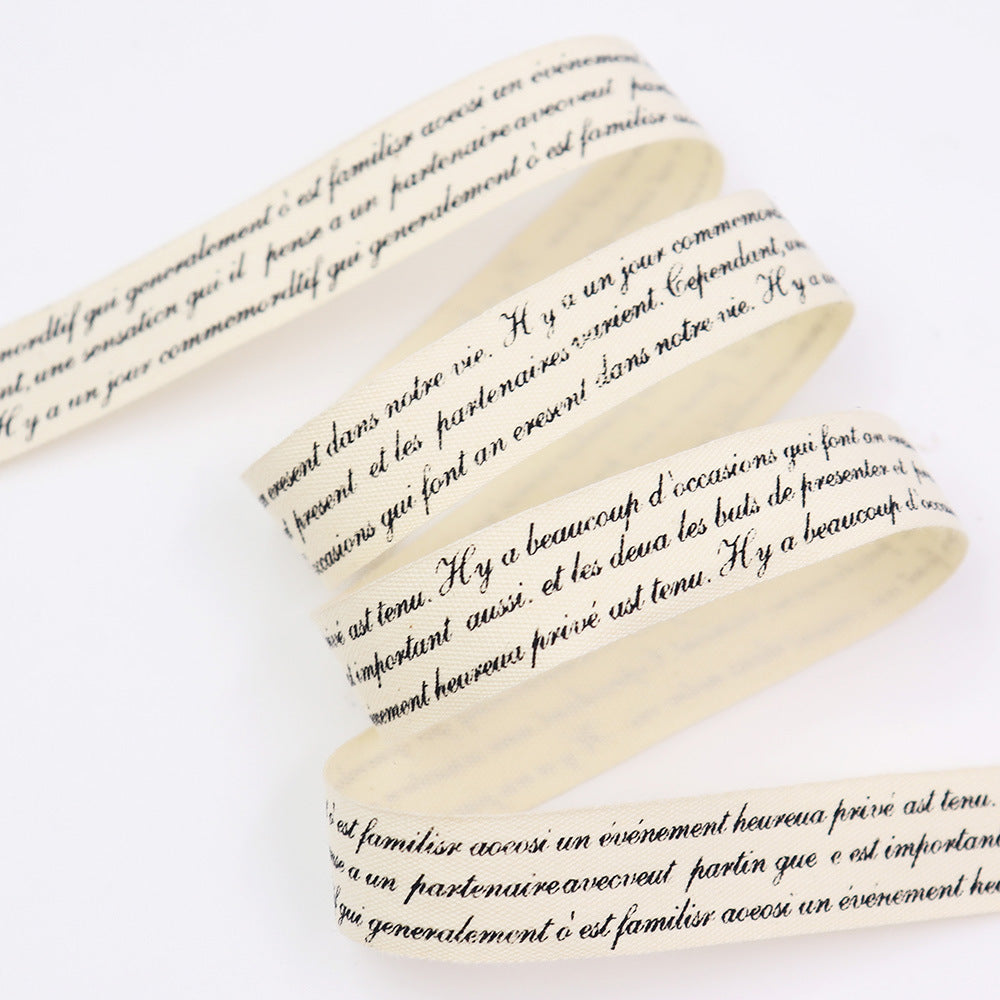 mordtif gui generalement ò est familisr aoeosi un événement
nt, une sensation gui il pense a un partenaire aveoveut
H y a un jour commemordtif gui generalement ò est familisr
eresent dans notre vie. H y a un jour commemor
present et les partenaires varient. Cependant, un
occasions gui font an eresent dans notre vie. H y a un
privé ast tenu. H y a beaucoup d'occasions gui font an
important aussi. et les deua les buts de presenter et
nement heureua privé ast tenu. H y a beaucoup d'occas
ò est familisr aoeosi un événement heureua privé ast tenu.
nse a un partenaire aveoveut partin gue c est important
gui generalement ò est familisr aoeosi un événement heu